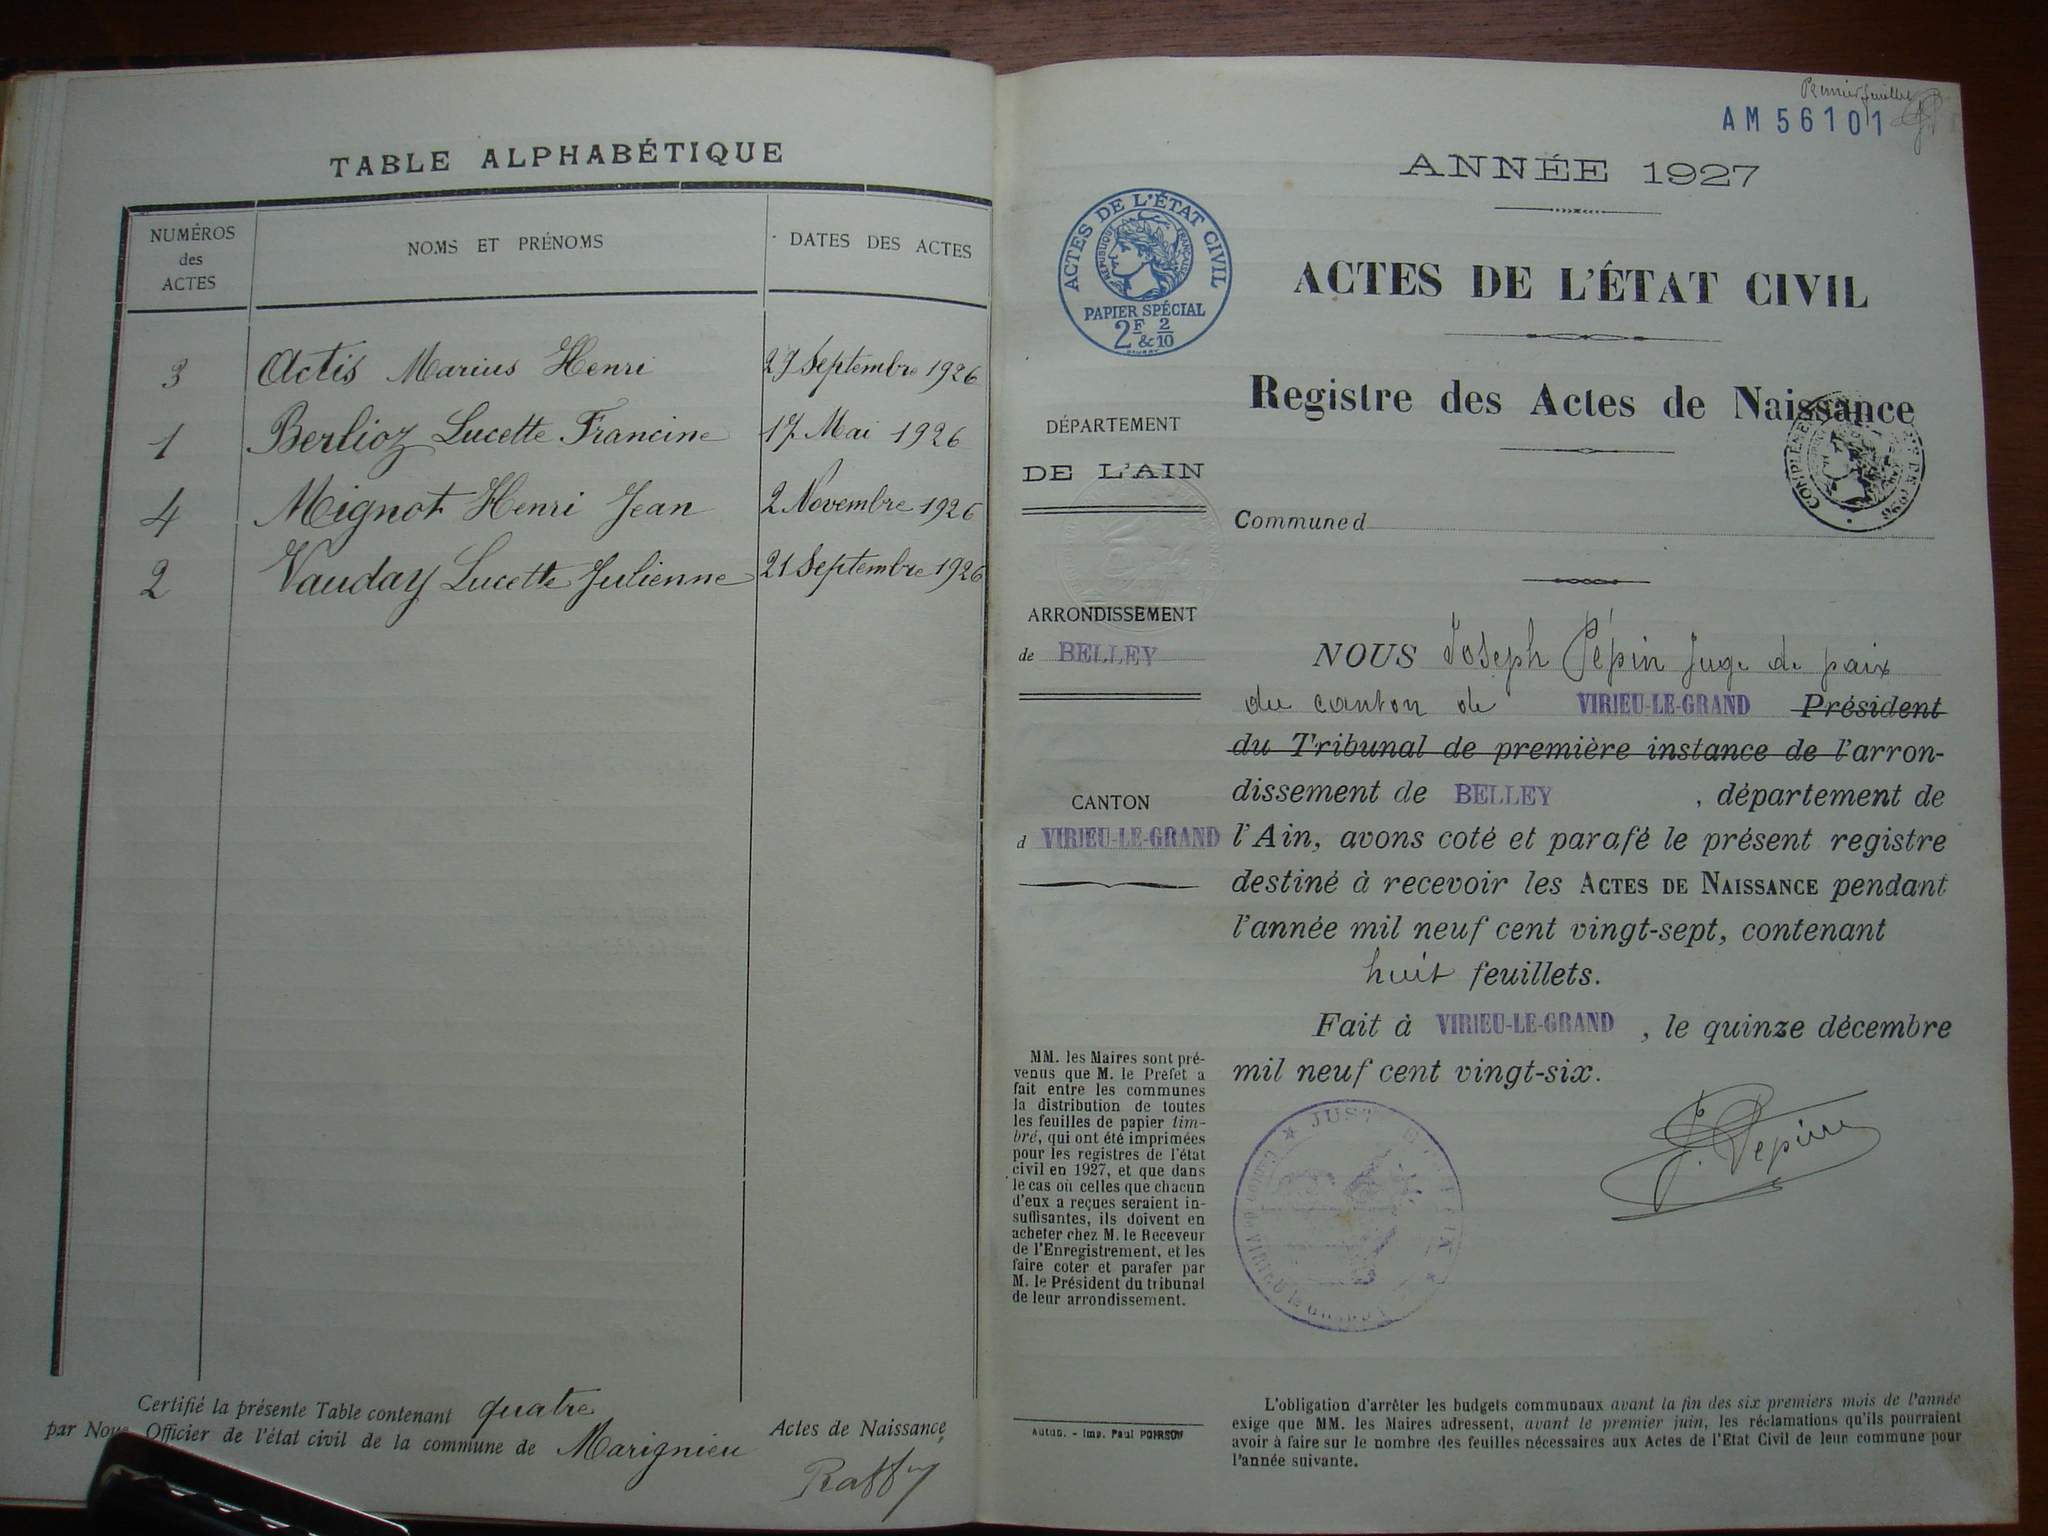 TABLE ALPHABÉTIQUE
NUMÉROS
des
ACTES
NOMS ET PRÉNOMS
DATES DES ACTES
3 Actis Marius Henri 27 Septembre 1926
1 Berlioz Lucette Francine 17 Mai 1926
4 Mignot Henri Jean 2 Novembre 1926
2 Vauday Lucette Julienne 21 Septembre 1926
Certifié la présente Table contenant quatre Actes de Naissance
par Nous Officier de l'état civil de la commune de Marignieu
Premier feuillet
AM 56101
ANNÉE 1927
ACTES DE L'ÉTAT CIVIL
RÉPUBLIQUE FRANÇAISE
PAPIER SPÉCIAL
2F & 2/10
ACTES DE L'ÉTAT CIVIL
Registre des Actes de Naissance
DÉPARTEMENT
DE L'AIN
Commune d
ARRONDISSEMENT
de BELLEY
CANTON
d VIRIEU-LE-GRAND
NOUS Joseph Pépin Juge de paix
du canton de VIRIEU-LE-GRAND Président
du Tribunal de première instance de l'arron-
dissement de BELLEY , département de
l'Ain, avons coté et parafé le présent registre
destiné à recevoir les ACTES DE NAISSANCE pendant
l'année mil neuf cent vingt-sept, contenant
huit feuillets.
Fait à VIRIEU-LE-GRAND , le quinze décembre
mil neuf cent vingt-six.
J. Pépin
MM. les Maires sont pré-
venus que M. le Préfet a
fait entre les communes
la distribution de toutes
les feuilles de papier tim-
bré, qui ont été imprimées
pour les registres de l'état
civil en 1927, et que dans
le cas où celles que chacun
d'eux a reçues seraient in-
suffisantes, ils doivent en
acheter chez M. le Receveur
de l'Enregistrement, et les
faire coter et parafer par
M. le Président du tribunal
de leur arrondissement.
Autun. - Imp. Paul POIRSON
L'obligation d'arrêter les budgets communaux avant la fin des six premiers mois de l'année
exige que MM. les Maires adressent, avant le premier juin, les réclamations qu'ils pourraient
avoir à faire sur le nombre des feuilles nécessaires aux Actes de l'Etat Civil de leur commune pour
l'année suivante.